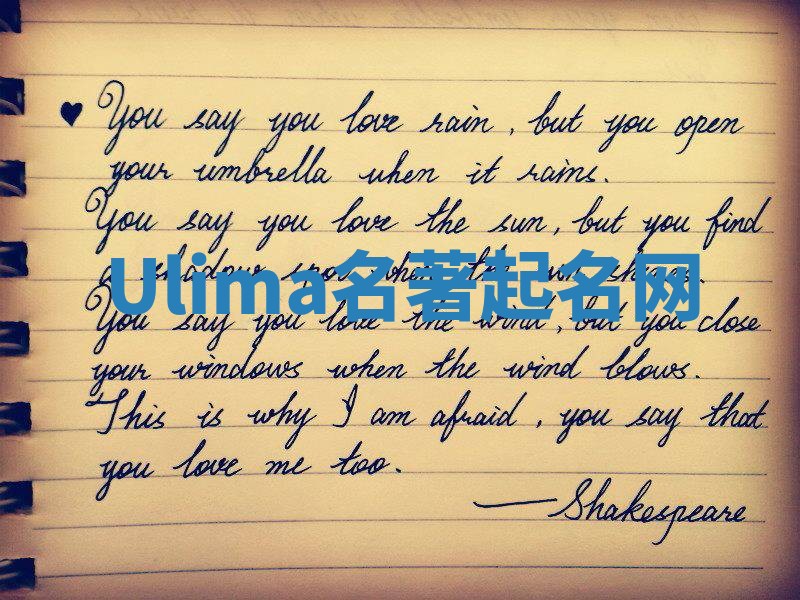 ♥ You say you love rain, but you open
your umbrella when it rains.
You say you love the sun, but you find
a shadow spot when the sun shines.
Ulima名著起名网
You say you love the wind, but you close
your windows when the wind blows.
This is why I am afraid, you say that
you love me too.
— Shakespeare